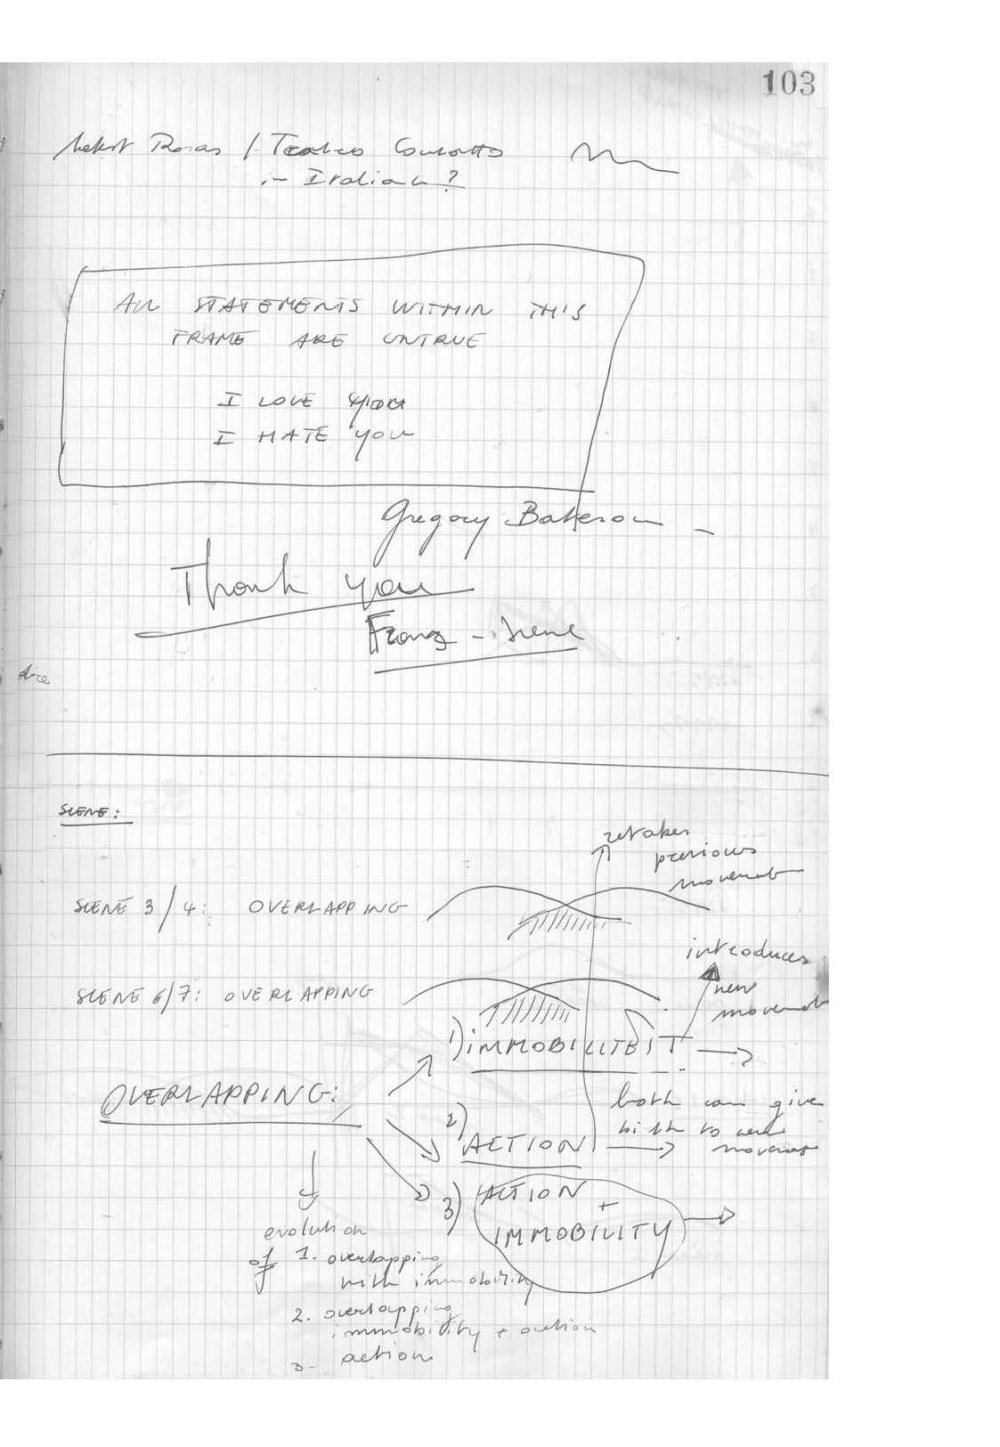 103
Rosas / Teatro
in Italian?
ALL STATEMENTS WITHIN THIS
FRAME ARE UNTRUE
I LOVE YOU
I HATE YOU
Gregory Bateson
Thank you
Franz - Irene
SCENE:
retakes
previous
movement
SCENE 3/4: OVERLAPPING
introduces
new
movement
SCENE 6/7: OVERLAPPING
1) IMMOBILITEIT
OVERLAPPING:
both can give
birth to new
movement
2) ACTION
3) ACTION
+
IMMOBILITY
evolution
of 1. overlapping
with immobility
2. overlapping
immobility + action
3- action